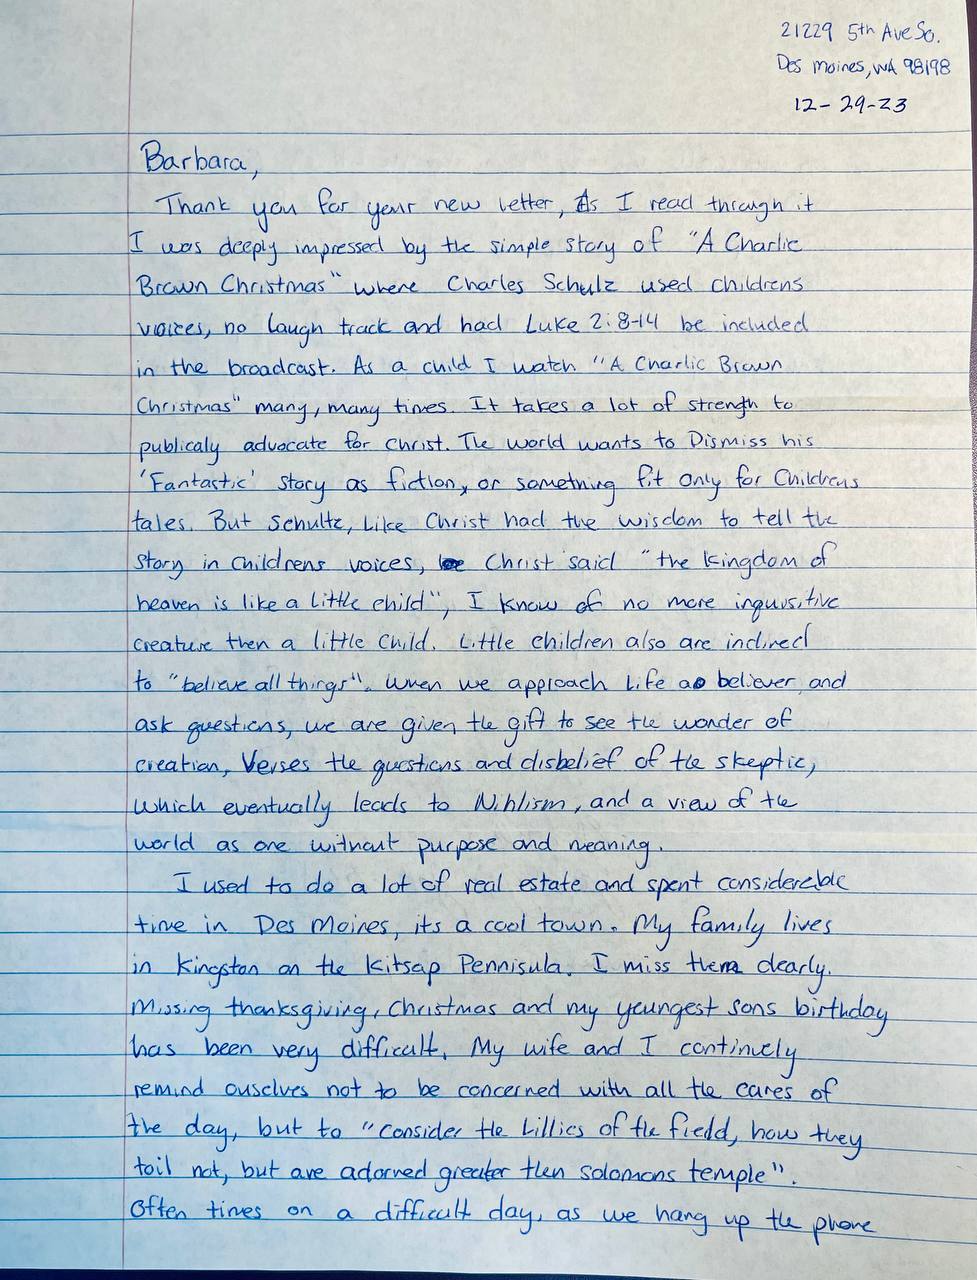 21229 5th Ave So.
Des Moines, WA 98198
12-29-23
Barbara,
Thank you for your new letter, As I read through it
I was deeply impressed by the simple story of "A Charlie
Brown Christmas" where Charles Schulz used childrens
voices, no laugh track and had Luke 2:8-14 be included
in the broadcast. As a child I watch "A Charlie Brown
Christmas" many, many times. It takes a lot of strength to
publicaly advocate for Christ. The world wants to Dismiss his
'Fantastic' story as fiction, or something fit only for Childrens
tales. But Schultz, Like Christ had the wisdom to tell the
story in childrens voices, Christ said "the kingdom of
heaven is like a little child", I know of no more inquisitive
creature then a little child. Little children also are inclined
to "believe all things". When we approach Life as believer and
ask questions, we are given the gift to see the wonder of
creation, Verses the questions and disbelief of the skeptic,
which eventually leads to Nihlism, and a view of the
world as one without purpose and meaning.
I used to do a lot of real estate and spent considerable
time in Des Moines, its a cool town. My family lives
in Kingston on the Kitsap Pennisula. I miss them dearly.
Missing thanksgiving, Christmas and my youngest sons birthday
has been very difficult. My wife and I continuely
remind ourselves not to be concerned with all the cares of
the day, but to "consider the Lillies of the field, how they
toil not, but are adorned greater then solomons temple".
Often times on a difficult day, as we hang up the phone